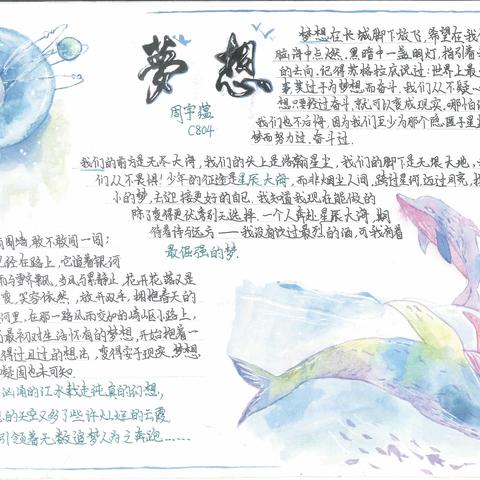 夢想
周宇蕴
C804
梦想在长城脚下放飞,希望在我们
脑海中点燃,黑暗中一盏明灯,指引着
的去向,记得苏格拉底说过:世界上最
事莫过于为梦想而奋斗,我们从不疑心
想,只要经过奋斗,就可以变成现实,哪怕
我们也不后悔,因为我们至少为那个隐匿于星
梦而努力过,奋斗过.
我们的前方是无尽大海,我们的头上是浩瀚星尘,我们的脚下是无垠大地,
们从不畏惧!少年的征途是星辰大海,而非烟尘人间,跨过星河,迈过月亮,
小的梦,去迎接更好的自己,我知道我现在能做的
除了变得更优秀别无选择,一个人奔赴星辰大海,期
待着诗与远方——我没有饮过最烈的酒,可我有着
最倔强的梦.
围墙,敢不敢闯一闯:
经在路上,它追着银河
与雪齐飘,与风与影静止,花开花落又是
变,笑容依然,放开双手,拥抱春天的
河里,在那一路风雨交加的崎岖小路上,
最初对生活怀有的梦想,开始抱着一
得过且过的想法,变得安于现实,梦想
疑固也未可知.
汹涌的江水载走纯真的幻想,
的天空又多了些许灿烂的云霞
引领着无数追梦人为之奔跑……